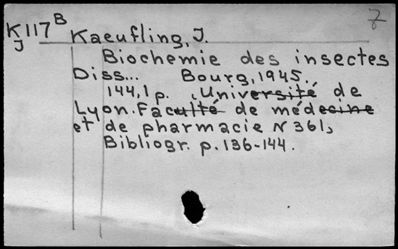 K117B
J
Kaeufling, J.
7
Biochemie des insectes
Diss... Bourg, 1945.,
144,1 p. (Université de
Lyon. Faculté de médecine
et de pharmacie N 361),
Bibliogr. p. 136-144.